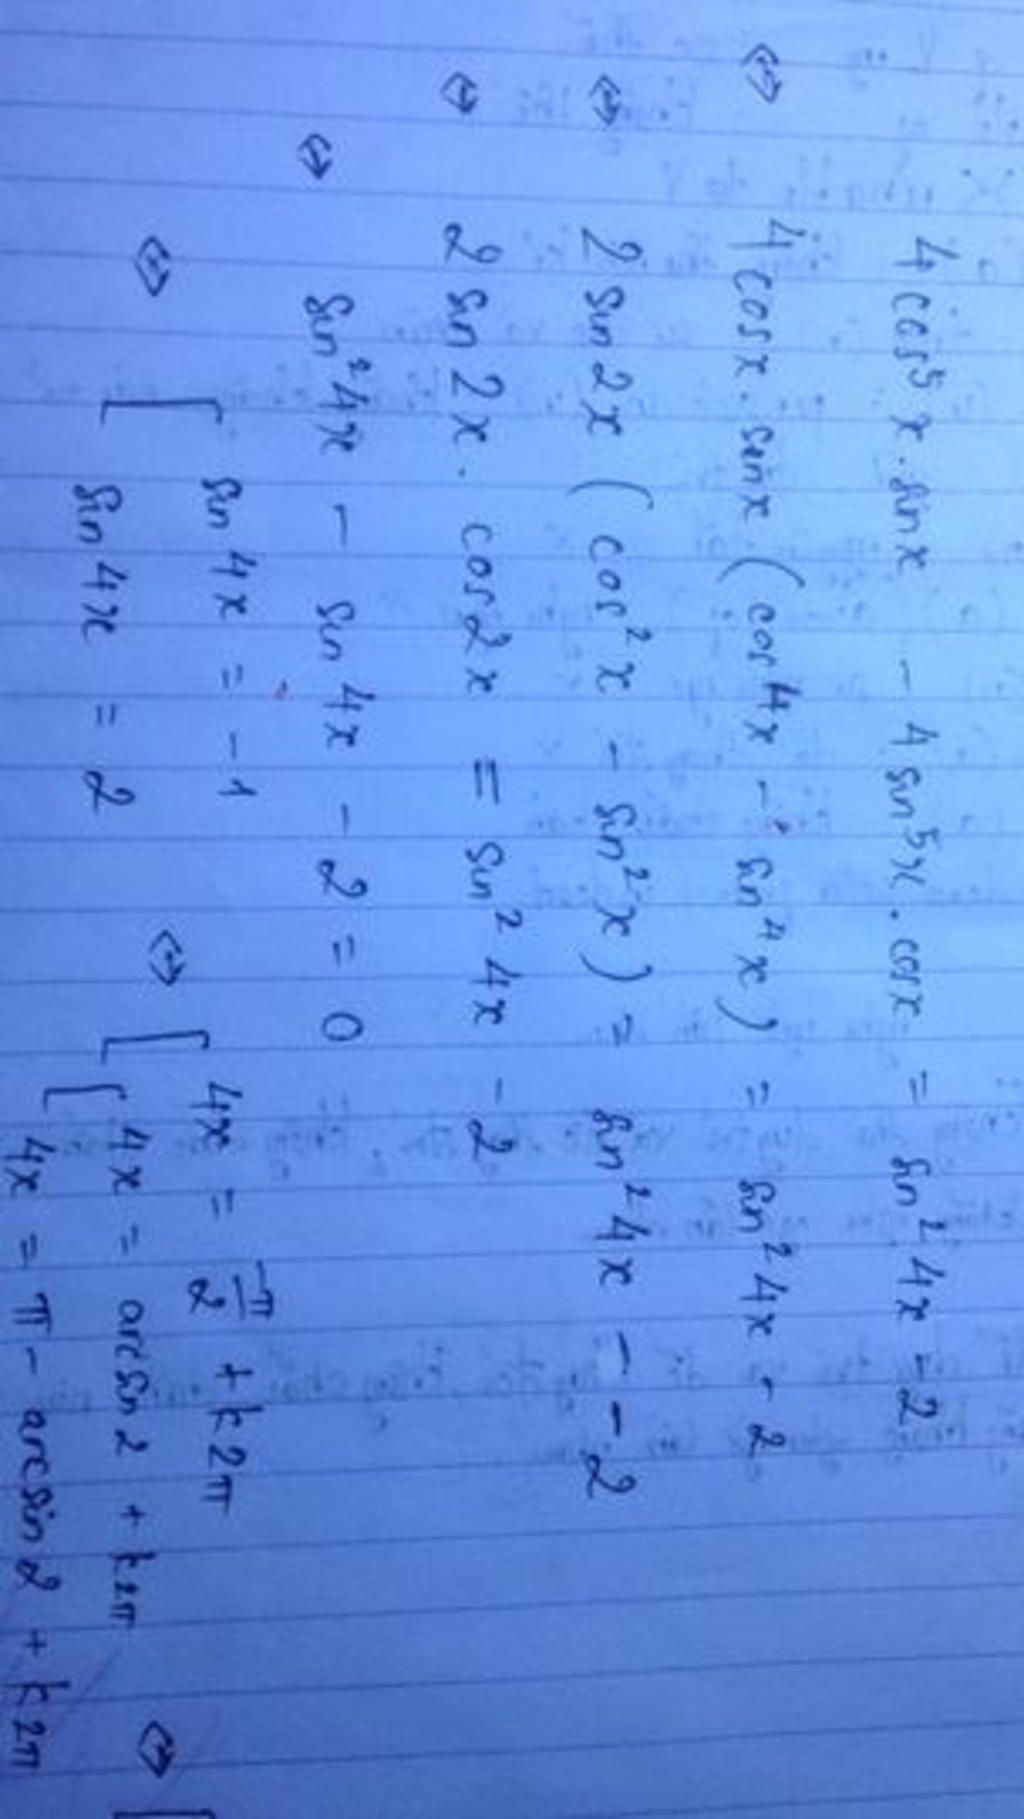 4cos⁵x.sinx - 4sin⁵x.cosx = sin²4x - 2
⇔ 4cosx.sinx(cos⁴x - sin⁴x) = sin²4x - 2
⇔ 2sin2x(cos²x - sin²x) = sin²4x - - 2
⇔ 2sin2x.cos2x = sin²4x - 2
⇔ sin²4x - sin4x - 2 = 0
⇔ [ sin4x = -1 ⇔ [ 4x = -π/2 + k2π ⇔ [
sin4x = 2 [ 4x = arcsin2 + k2π
4x = π - arcsin2 + k2π